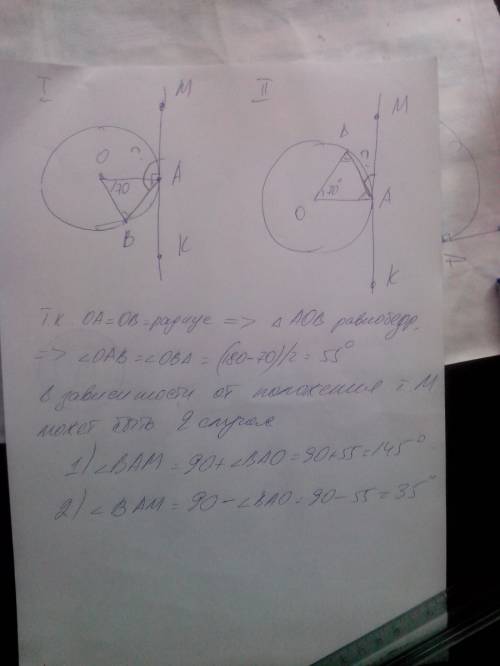 I
M
O
70
A
B
K
?
II
M
B
?
70°
O
A
K
Т.к. OA=OB=радиус => △ AOB равнобедр.
=> ∠OAB=∠OBA = (180-70)/2 = 55°
В зависимости от положения т. М
может быть 2 случая
1) ∠BAM = 90+∠BAO = 90+55=145°
2) ∠BAM = 90-∠BAO = 90-55=35°